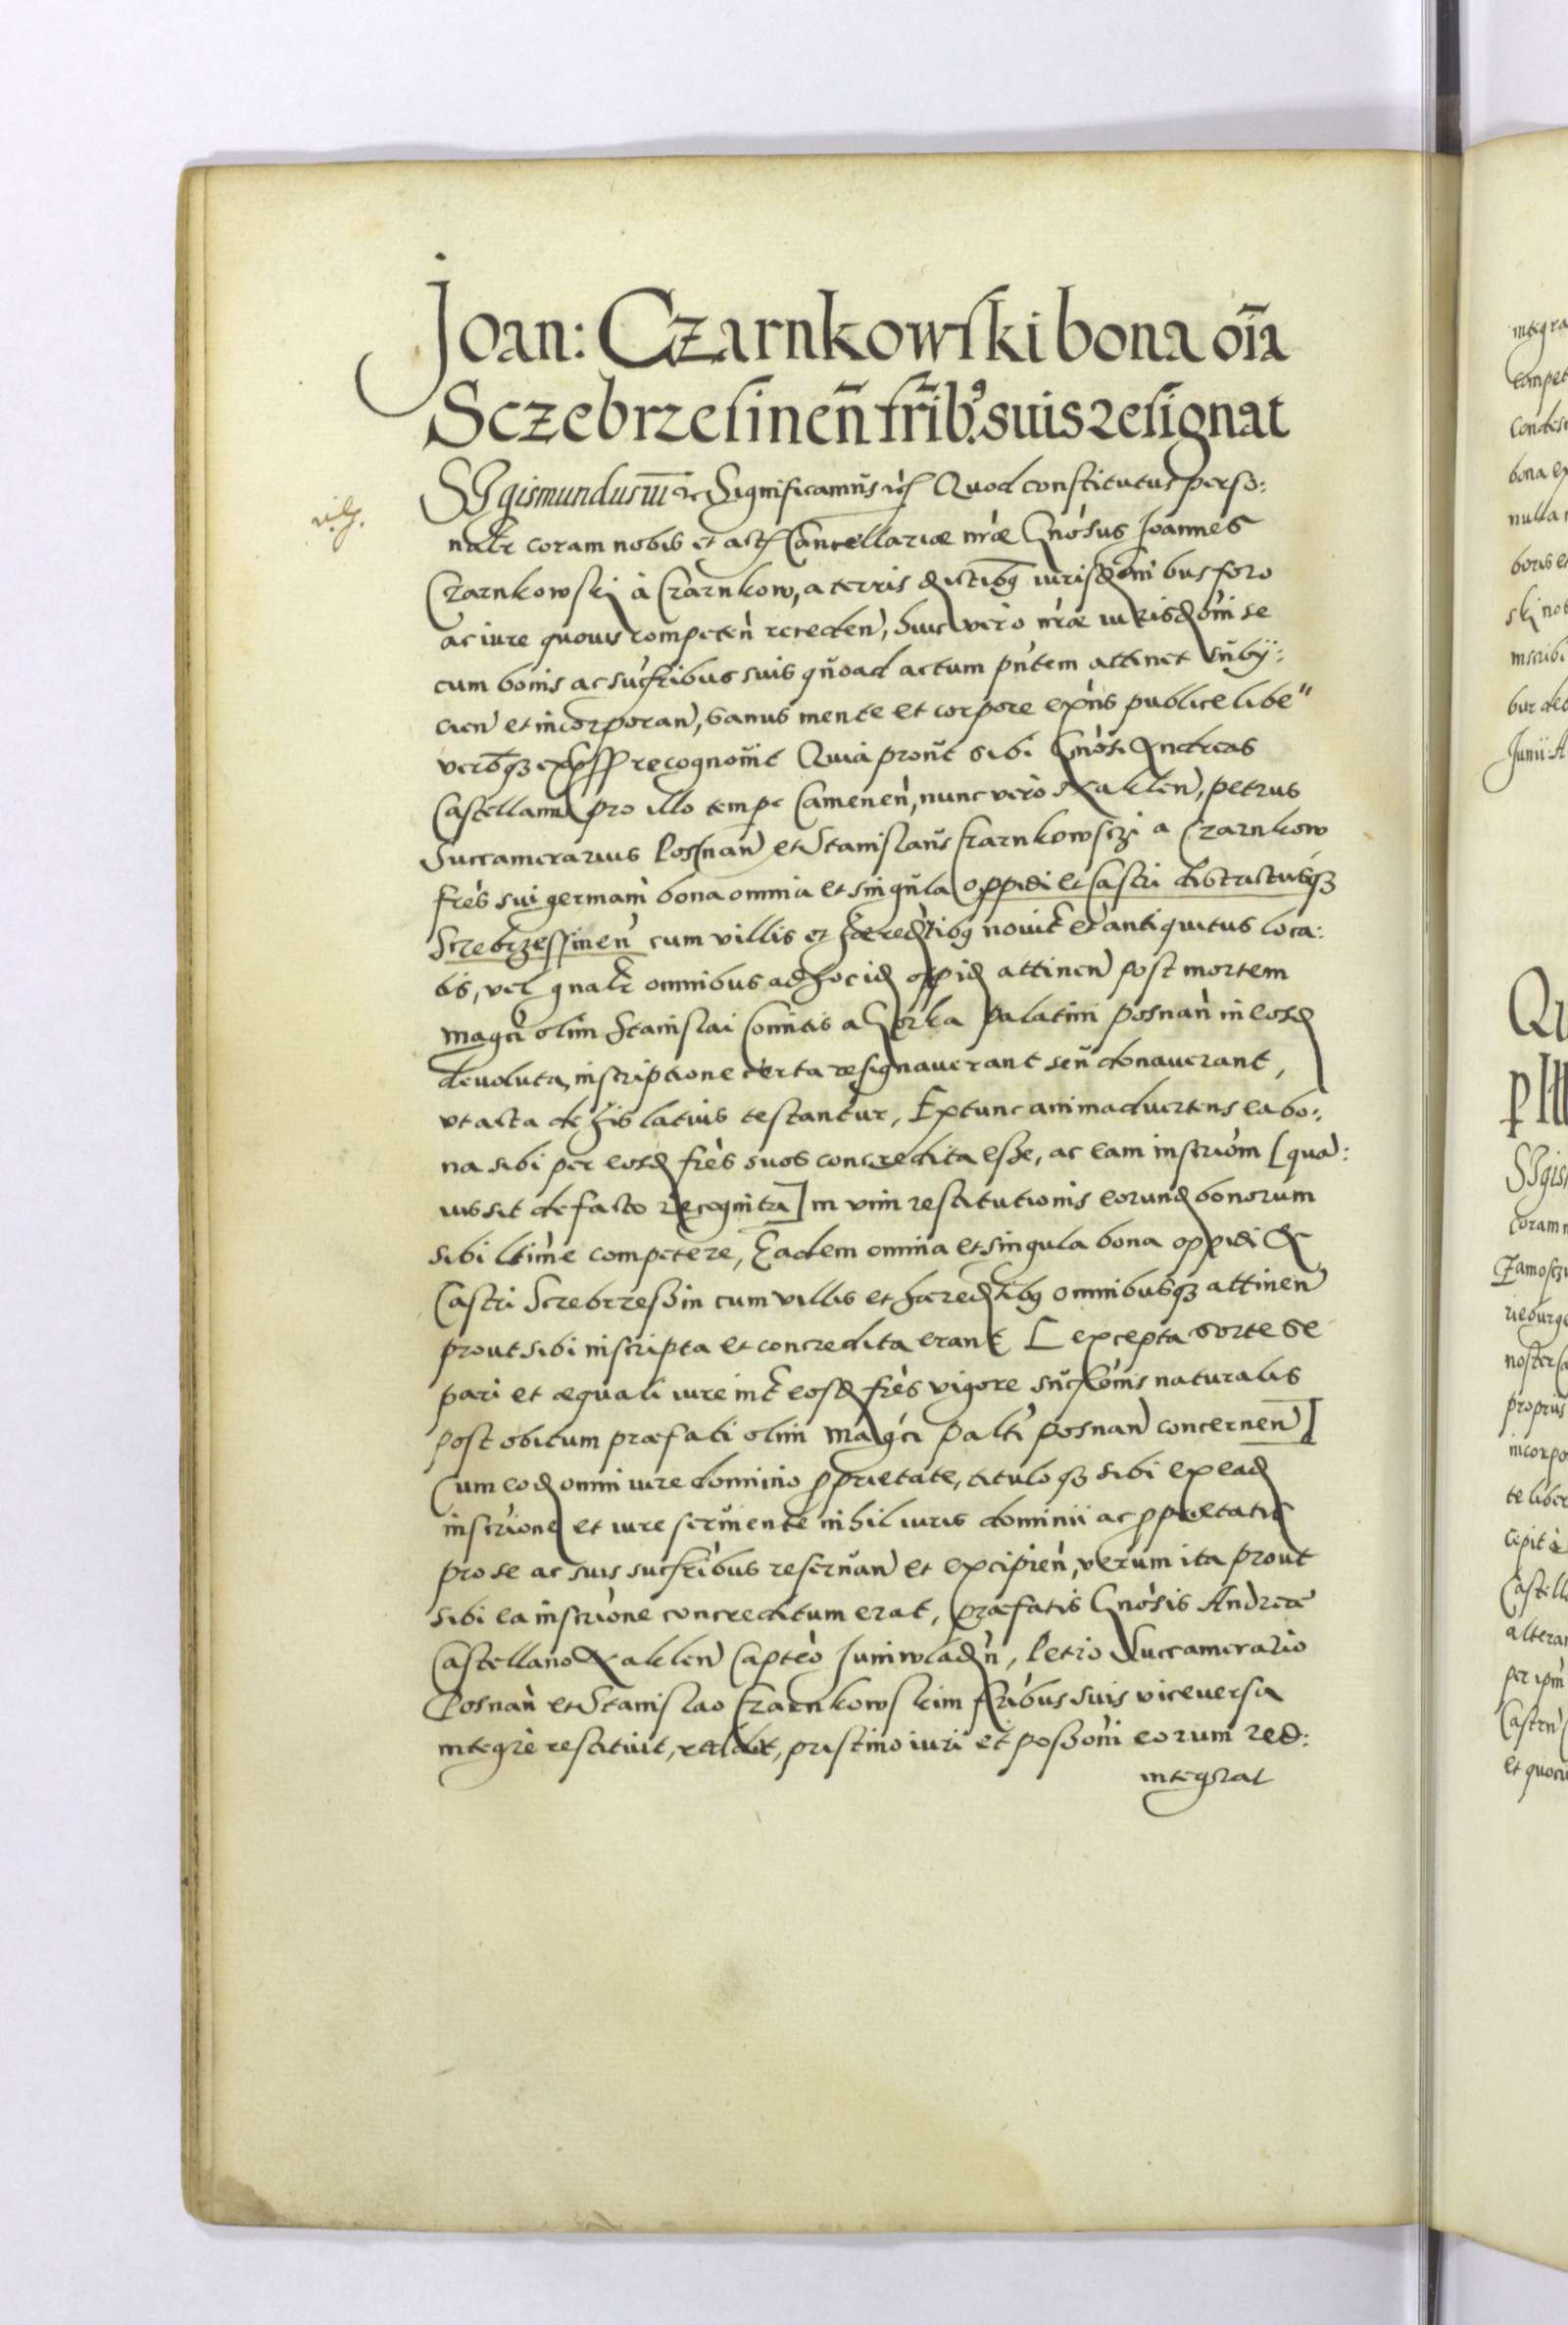 Joan: Czarnkowski bona oīa
Sczebrzesinen̄ fr̄ib9 suis resignat
SSgismundus III etc Significamus Quod constitutus perso:
nalr coram nobis et actis Cancellariæ nr̀æ Gnòsus Joannes
Czarnkowskj à Czarnkow, a terris districtibq iurisdoni bus foro
ac iure quouis competeǹ receden̄, huic vero nr̀æ iurisdoni se
cum bonis ac sucribus suis quoad actum pn̄tem attinet subij:
cien̄ et incorporan̄, sanus mente et corpore exn̄s publice libe"
verbq expsse recognouit Quia prout sibi Gnòsi Andreas
Castellanus pro illo tempe Cameneǹ, nunc vero Naklen̄, Petrus
Succamerarius Posnan̄ et Stanislaus Czarnkowsczi a Czarnkow
frès sui germani bona omnia et singula oppidi et Castri districtusq
Sczebrzessinen̄ cum villis et hæreditibq nouitr et antiquitus loca:
tis, vel gnalr omnibus ad hocid oppid attinen̄ post mortem
magci olim Stanislai Comitis a Gorka Palatini Posnan̄ in eosd
deuoluta, inscriptione certa resignauerant seu donauerant,
vt acta de his latius testantur, Extunc animaduertens ea bo:
na sibi per eosd frès suos concredita esse, ac eam inscriòm [qua:
uis sit de facto recognita] in vim restitutionis eorund bonorum
sibi ltìme competere, Eadem omnia et singula bona oppidi &
Castri Sczebrzessin cum villis et hæreditibq omnibusq attinen̄
prout sibi inscripta et concredita erant [ excepta sorte se
pari et æquali iure intr eosd frès vigore sucsionis naturalis
post obitum præfati olim Magci Palti Posnan̄ concernen̄ ]
Cum eod omni iure dominio pprietate, tituloq sibi ex ead
inscriòne et iure seruiente nihil iuris dominii ac pprietatis
pro se ac suis sucribus reseruan̄ et excipien̄, verum ita prout
sibi ea inscriòne concreditum erat, præfatis Gnòsis Andreæ
Castellano Naklen̄ Captèo Juniwladn̄, Petro Succamerario
Posnan̄ et Stanislao Czarnkowskim fribus suis viceversa
integrè restituit, reddit, pristino iuri et possoni eorum red:
integrat